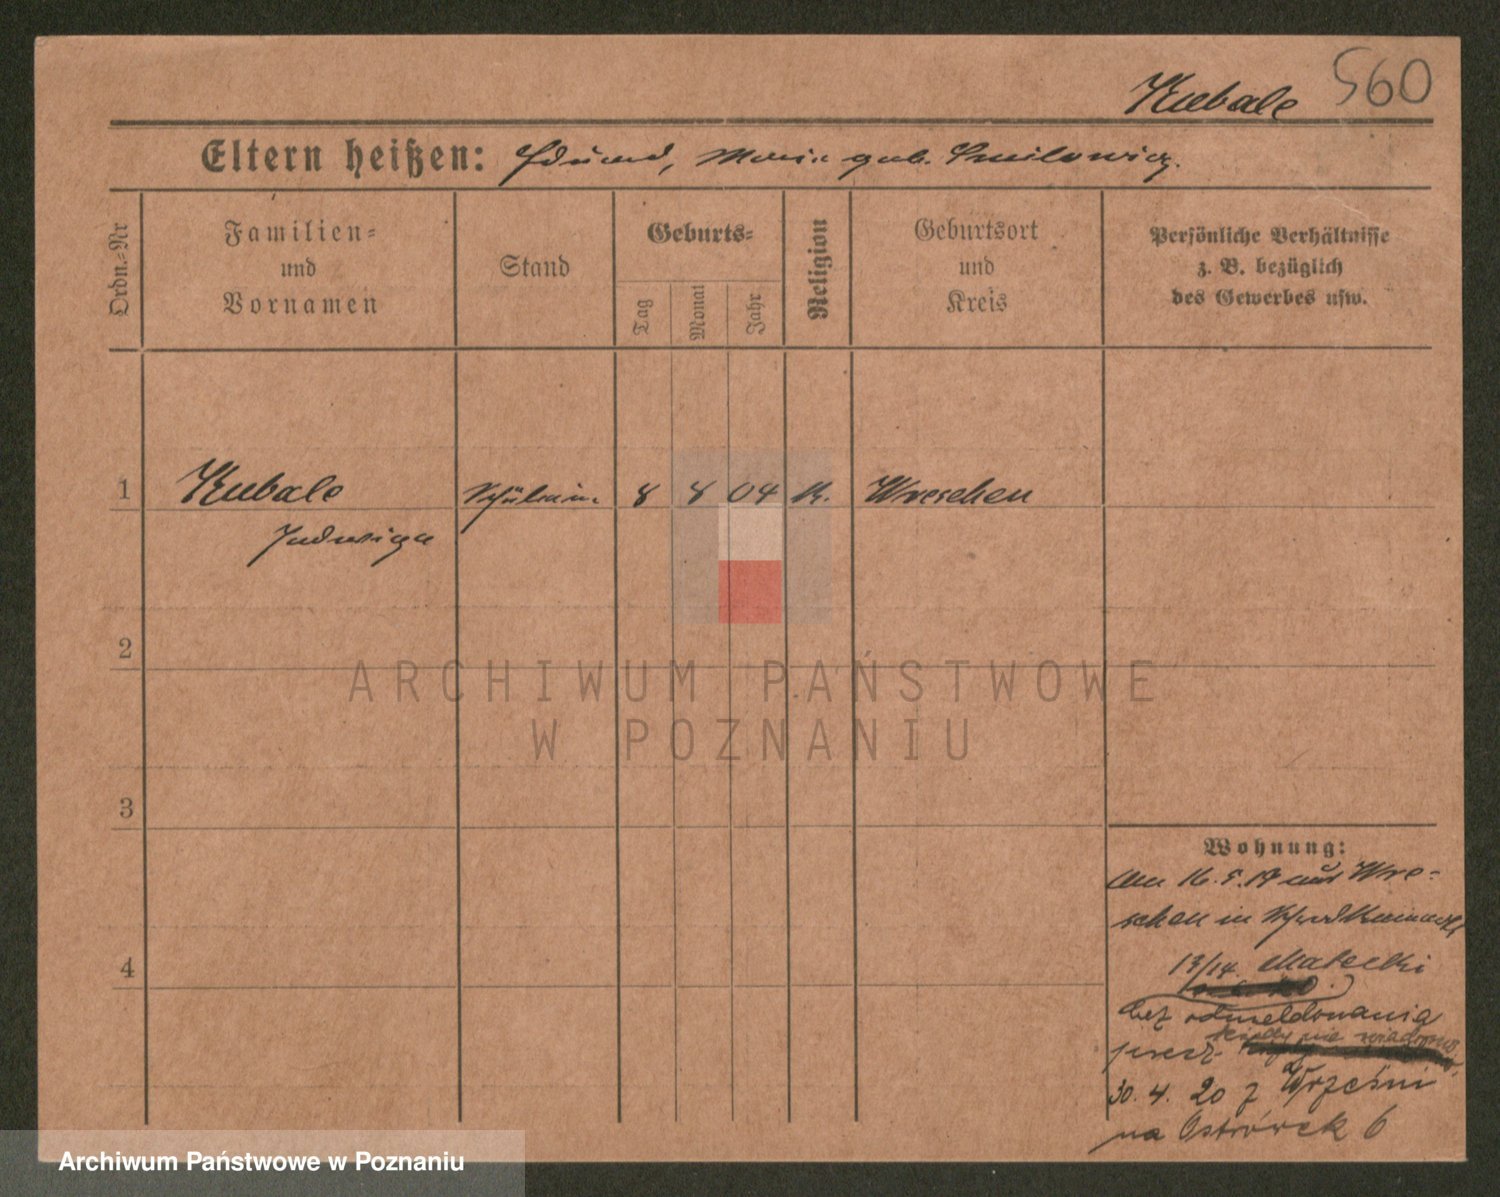 Kubale 560
Eltern heißen: Edmund, Maria geb. Smilowicz.
Ordn.=Nr
Familien=
und
Vornamen
Stand
Geburts=
Tag
Monat
Jahr
Religion
Geburtsort
und
Kreis
Persönliche Verhältnisse
z. B. bezüglich
des Gewerbes usw.
1 Kubale Schülerin 8 8 04 K. Wreschen
Jadwiga
2
ARCHIWUM PAŃSTWOWE
W POZNANIU
3
Wohnung:
Am 16. 5. 19 aus Wre-
schen in
13/14. Małecki
4
bez odmeldowania
kiedy nie wiadomo
precz
30. 4. 20 z Wrześni
na Ostrówek 6
Archiwum Państwowe w Poznaniu